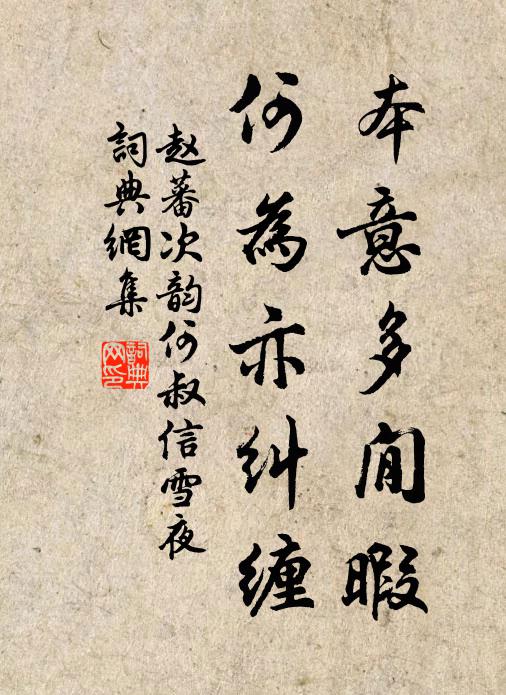 本意多閒暇
何為亦糾纏
赵蕃次韵何叔信雪夜
詞典網集
詞典网印